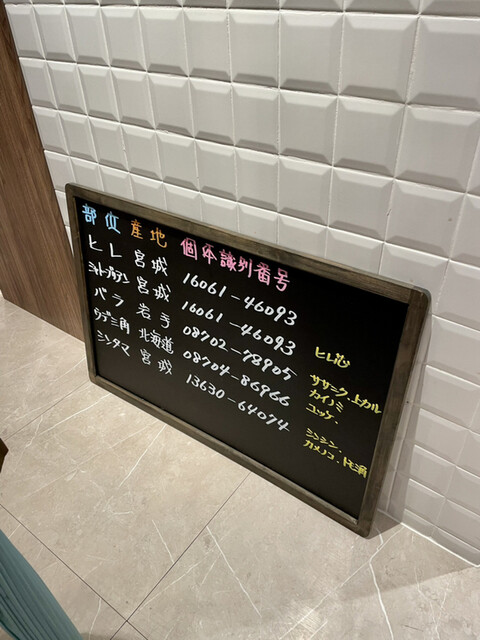 部位 産地 個体識別番号
ヒレ 宮城 16061-46093
シャトーブリアン 宮城 16061-46093 ヒレ芯
バラ 岩手 08702-78905 ササミク.上カル
カイノミ
ウデ三角 北海道 08704-86966 コッケ.
シンタマ 宮城 13630-64074 シンシン.
カメノコ.トモ三角